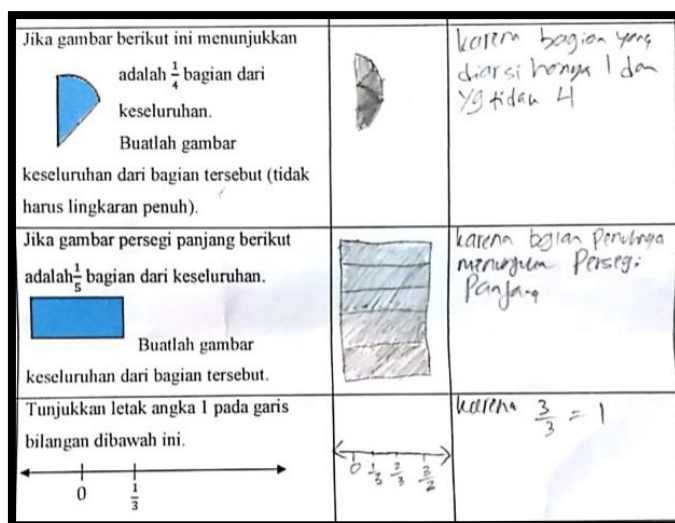 Jika gambar berikut ini menunjukkan
adalah 1/4 bagian dari
keseluruhan.
Buatlah gambar
keseluruhan dari bagian tersebut (tidak
harus lingkaran penuh).
karena bagian yang
diarsi hanya 1 dan
yg tidak 4
Jika gambar persegi panjang berikut
adalah 1/5 bagian dari keseluruhan.
Buatlah gambar
keseluruhan dari bagian tersebut.
karena bagian
Persegi
Panjang
Tunjukkan letak angka 1 pada garis
bilangan dibawah ini.
0 1/3
0 1/3 2/3
karena 3/3 = 1